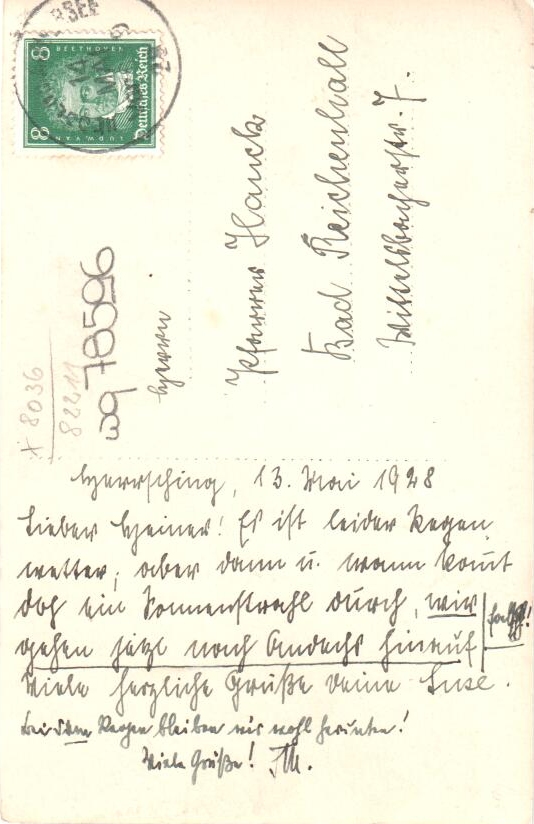 8 BEETHOVEN 8
LUDW. VAN
Deutsches Reich
Herrn
Pfarrer Hauck
Bad Reichenhall
Wittelsbacherstr. 7.
wq 78596
x 8036
82211
Herrsching, 13. Mai 1928
Lieber Heiner! Es ist leider Regen
wetter, aber dann u. wann kommt
doch ein Sonnenstrahl durch, wir
gehen jetzt nach Andechs hinauf
Viele herzliche Grüße Deine Suse.
Bei dem Regen bleiben wir wohl herunten!
Viele Grüße!